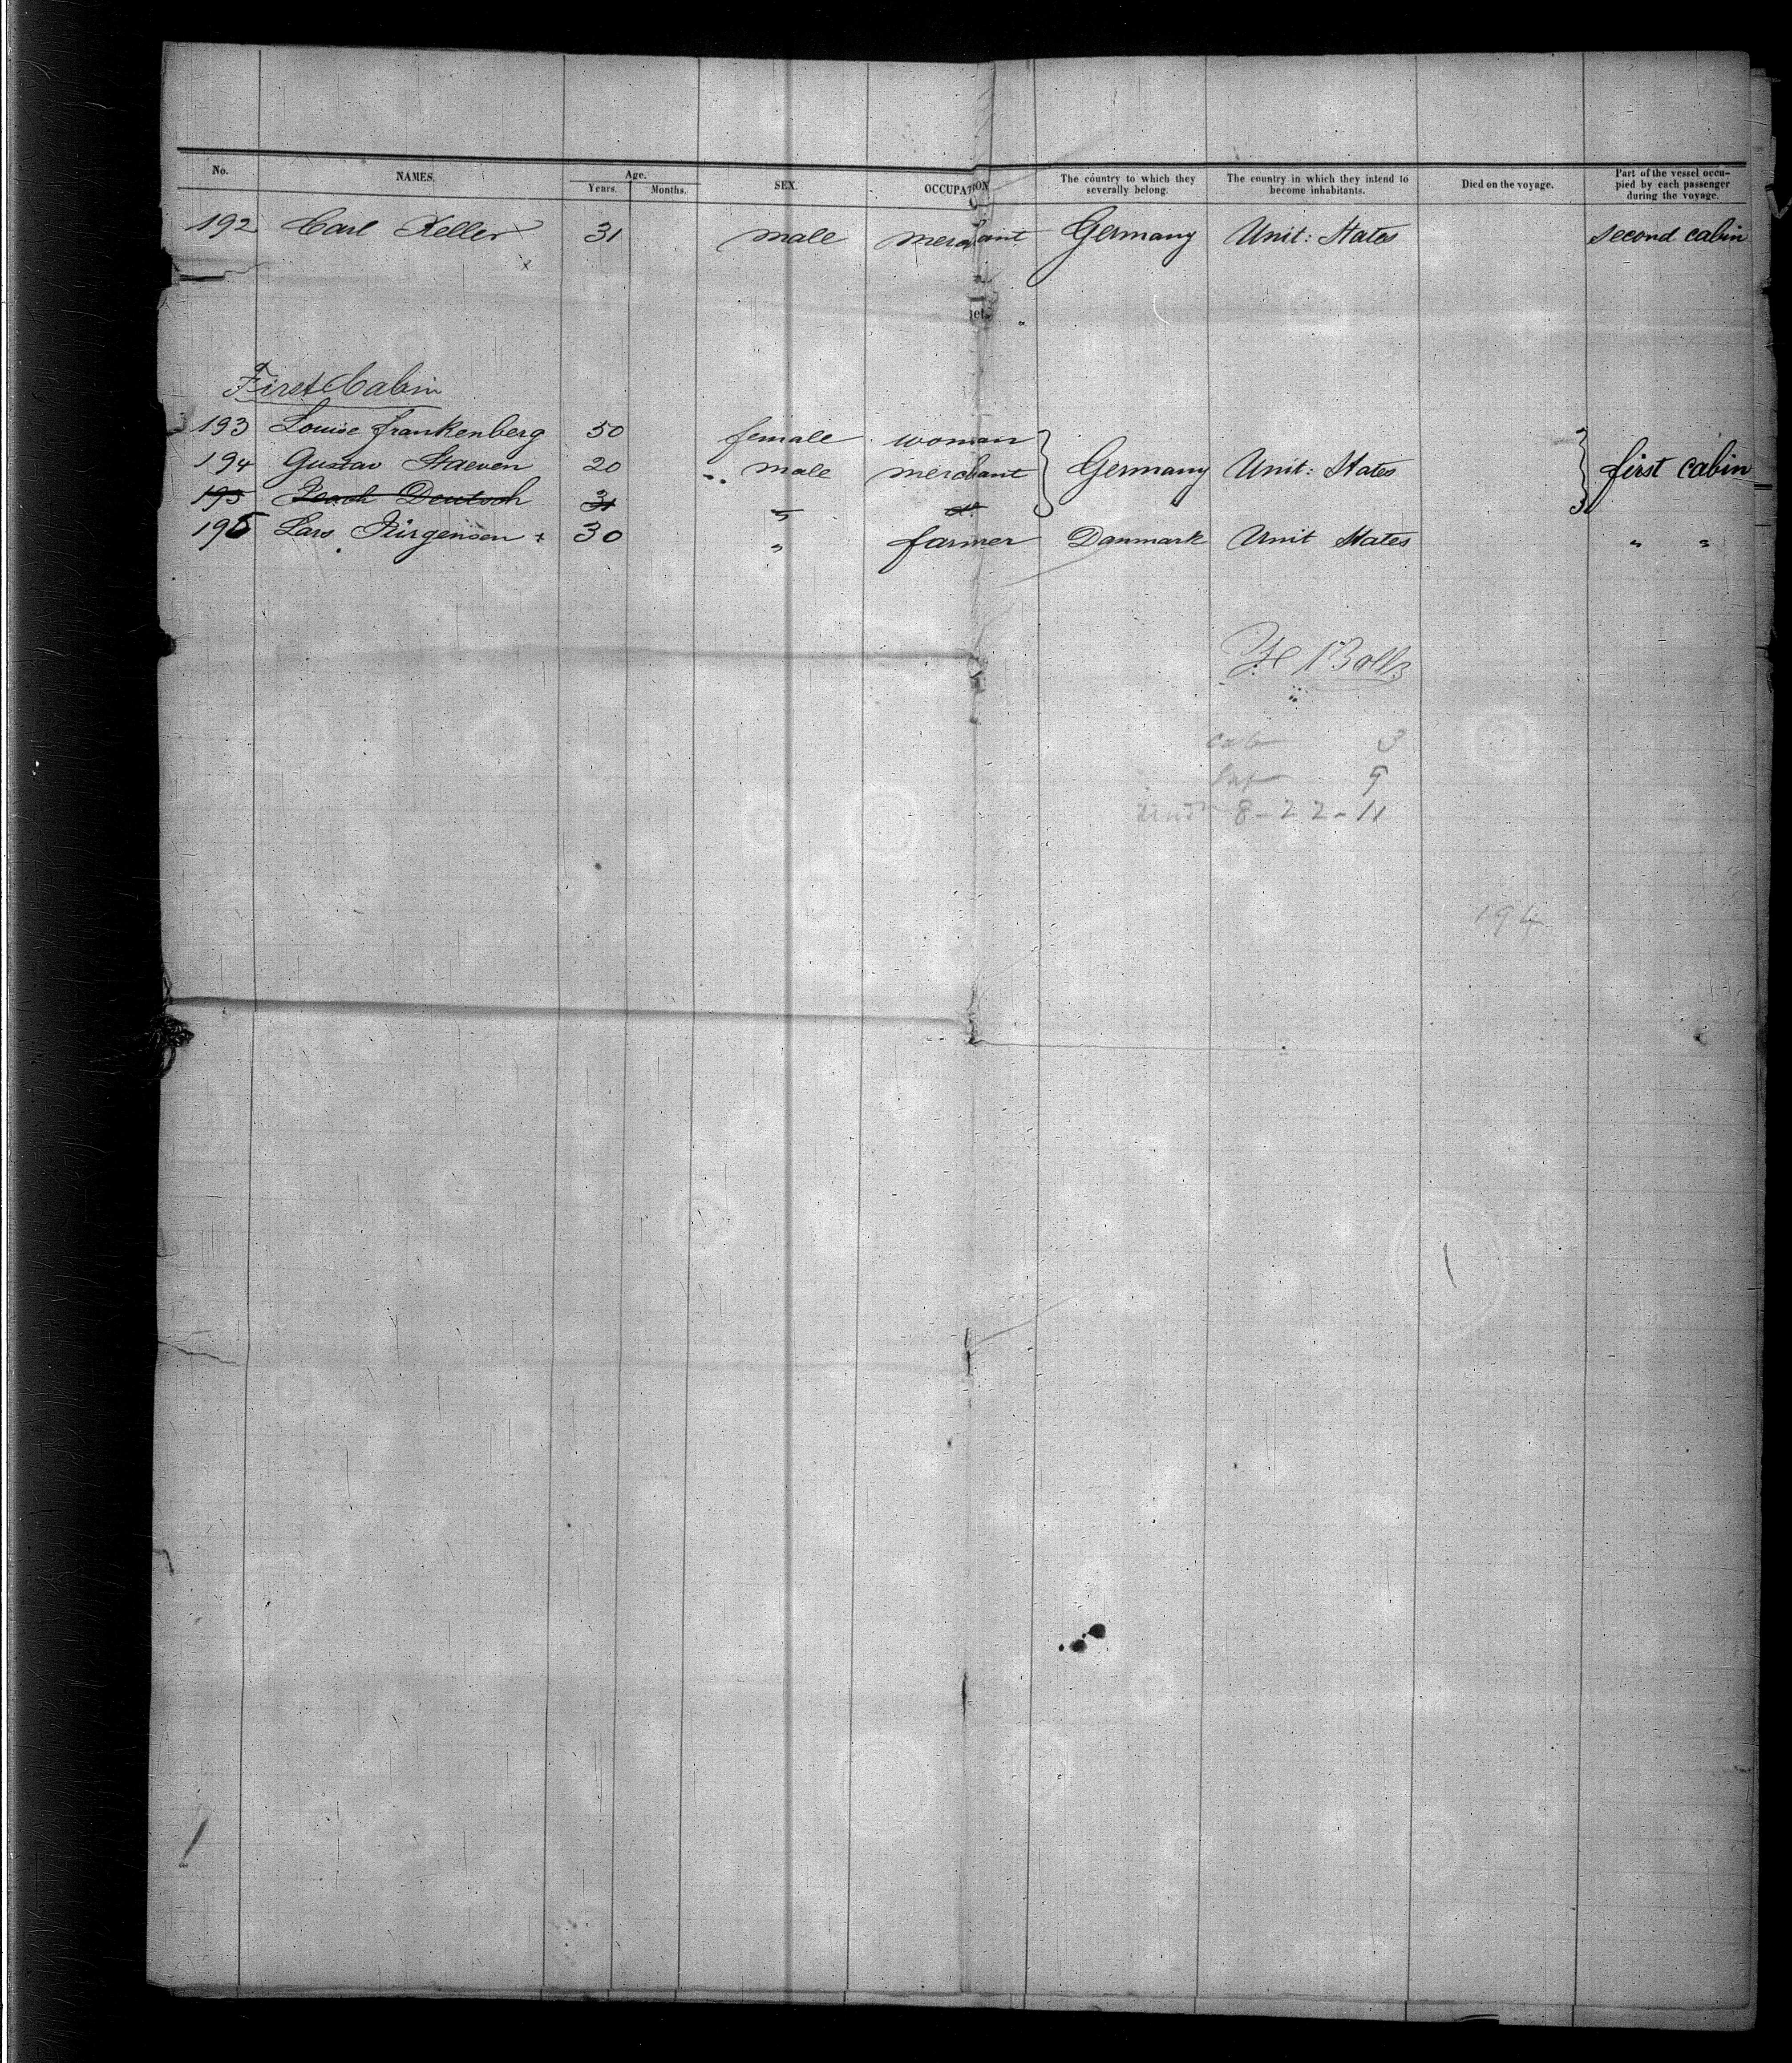 No. NAMES. Age. Years. Months. SEX. OCCUPATION The country to which they severally belong. The country in which they intend to become inhabitants. Died on the voyage. Part of the vessel occupied by each passenger during the voyage.
192 Carl Keller 31 male merchant Germany Unit: States second cabin
First Cabin
193 Louise Frankenberg 50 female woman
194 Gustav Staeven 20 male merchant Germany Unit: States first cabin
195 Deutsch 31 " d°
195 Lars Jürgensen + 30 " farmer Danmark Unit States " "
Cab 3
Inf 5
Und 8-22-11
194